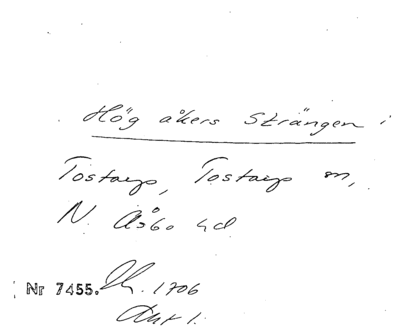 Hög åkers Strängen i
Tostarp, Tostarp sn,
N Åsbo hd
Nr 7455. Lh. 1706
Akt 1.